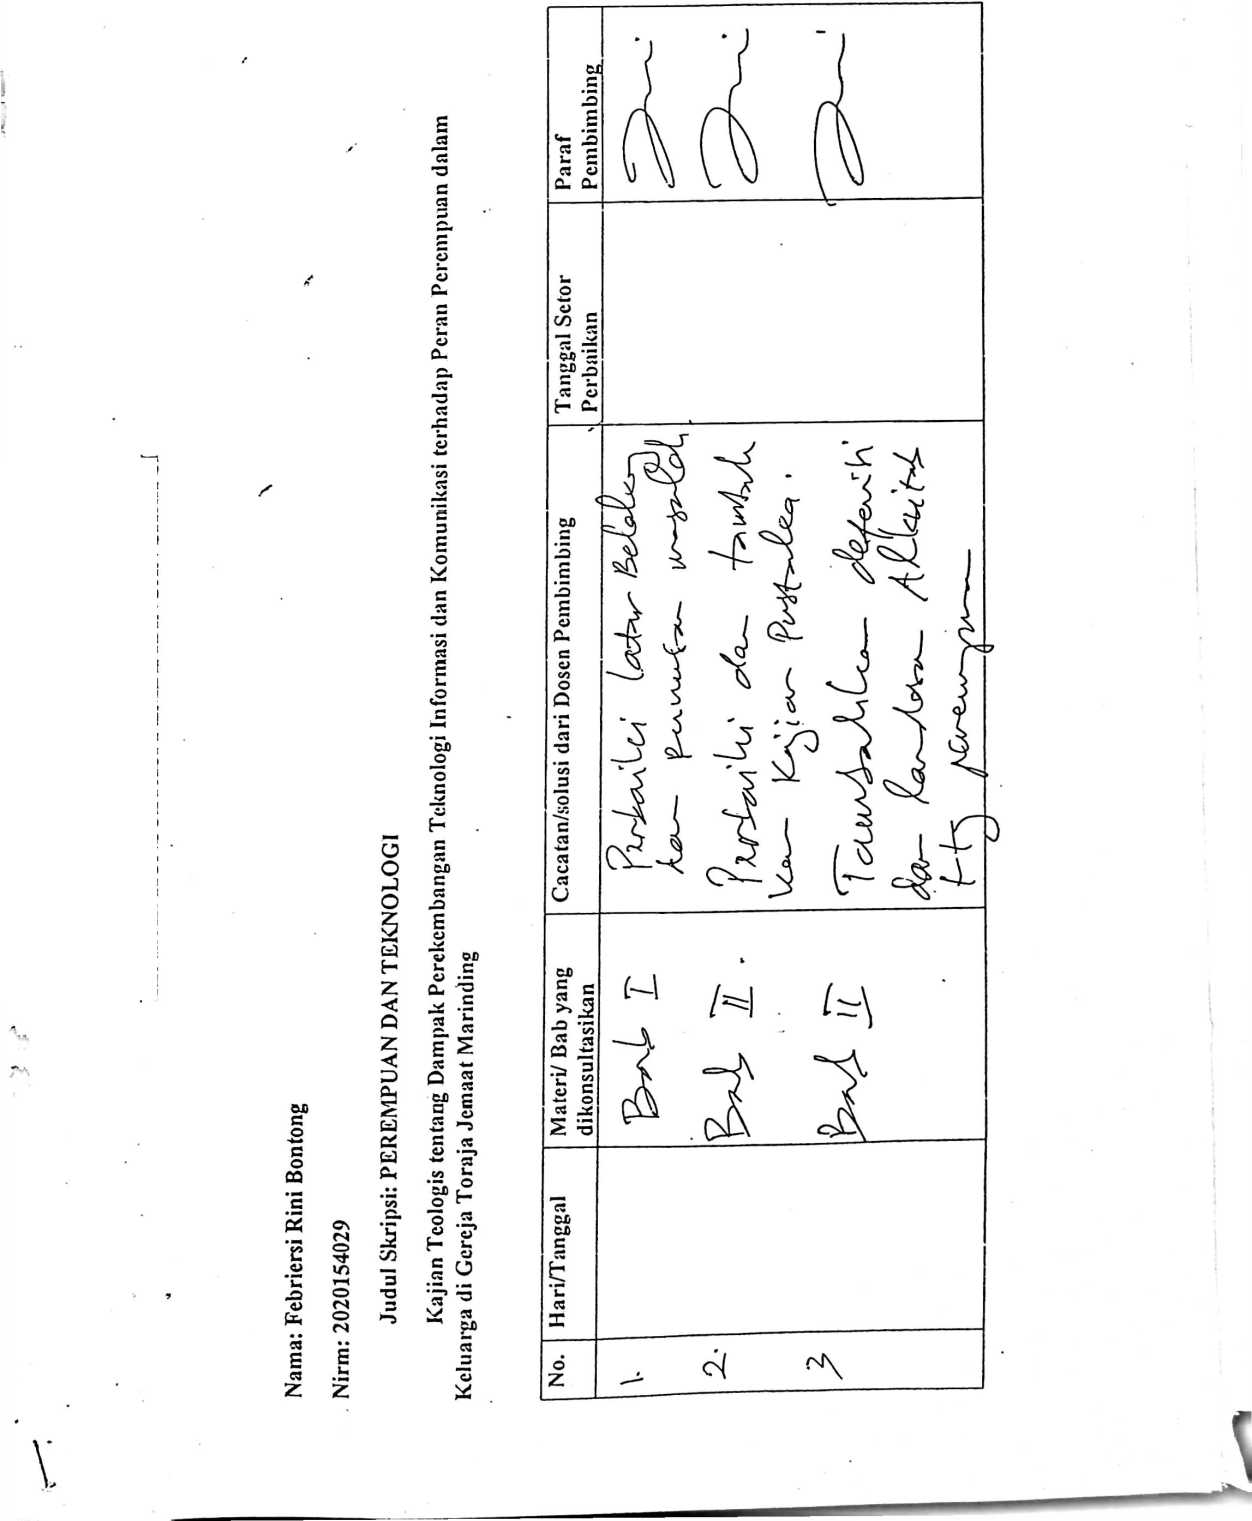 Nama: Febriersi Rini Bontong
Nirm: 2020154029
Judul Skripsi: PEREMPUAN DAN TEKNOLOGI
Kajian Teologis tentang Dampak Perekembangan Teknologi Informasi dan Komunikasi terhadap Peran Perempuan dalam
Keluarga di Gereja Toraja Jemaat Marinding
No. Hari/Tanggal Materi/ Bab yang dikonsultasikan Cacatan/solusi dari Dosen Pembimbing Tanggal Setor Perbaikan Paraf Pembimbing
1. Bab I Perbaiki Latar Belakang
dan rumusan masalah
2. Bab II. Perbaiki dan tambah
kan Kajian Pustaka.
3 Bab II Tambahkan definisi
dan landasan Alkitab
ttg perempuan